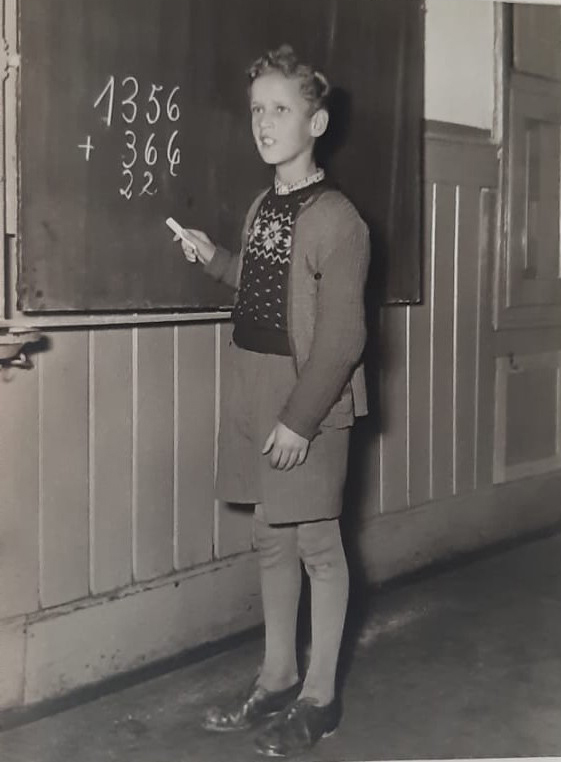 1356
+ 366
22